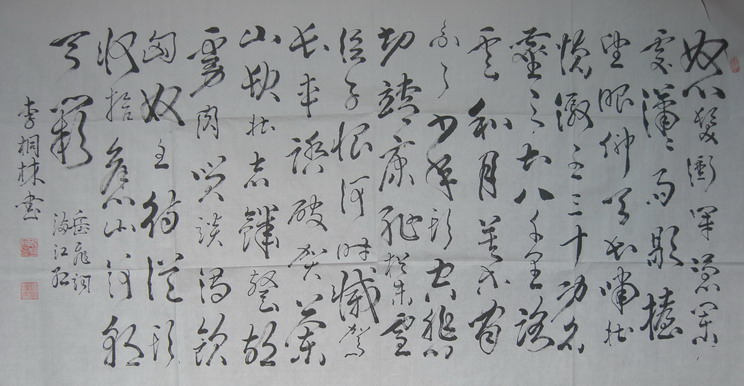 怒髮衝冠憑闌
處瀟瀟雨歇擡
望眼仰天長嘯壯
懷激烈三十功名
塵與土八千里路
雲和月莫等閒
白了少年頭空悲
切靖康恥猶未雪
臣子恨何時滅駕
長車踏破賀蘭
山缺壯志饑餐胡
虜肉笑談渴飲
匈奴血待從頭
收拾舊山河朝
天闕
岳飛詞
滿江紅
李桐棟書